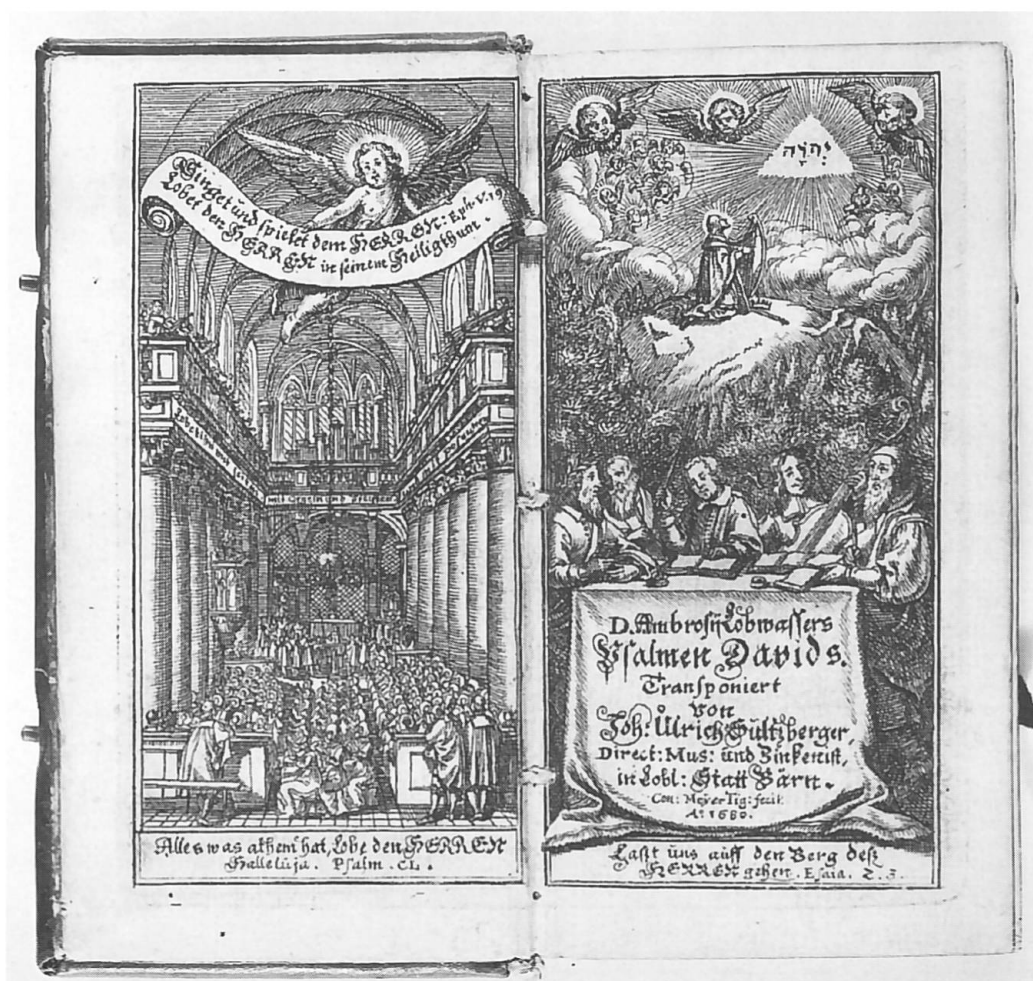 Singet und spielet dem HERREN: Eph. V. 19
Lobet den HERREN in seinem Heiligthum.
mit
Alles was athem hat, Lobe den HERREN
Halleluja. Psalm. CL.
יְהֹוָה
D. Ambrosij Lobwassers
Psalmen Davids.
Transponiert
von
Joh: Ulrich Sultzberger,
Direct: Mus: und Zinkenist,
in Lobl: Statt Bärn.
Con: Meyer Tig: fecit.
Aº 1680.
Laßt uns auff den Berg deß
HERREN gehen. Esaia. 2. 3.